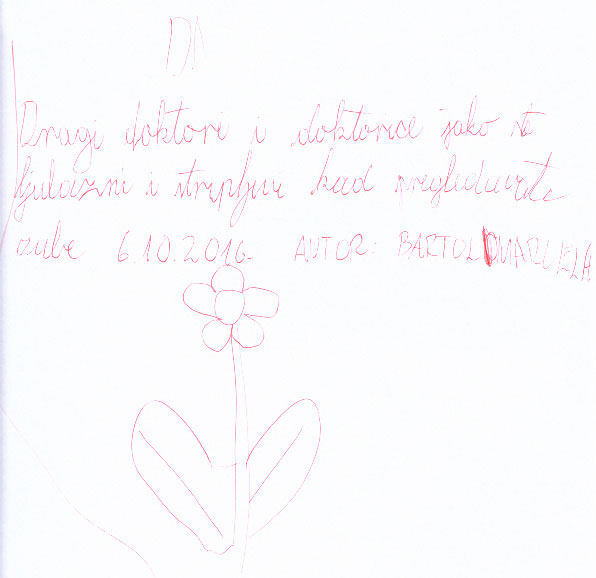 DA
Dragi doktori i doktorice jako ste
ljubazni i strpljivi kad pregledavate
zube 6.10.2016. AUTOR: BARTOL